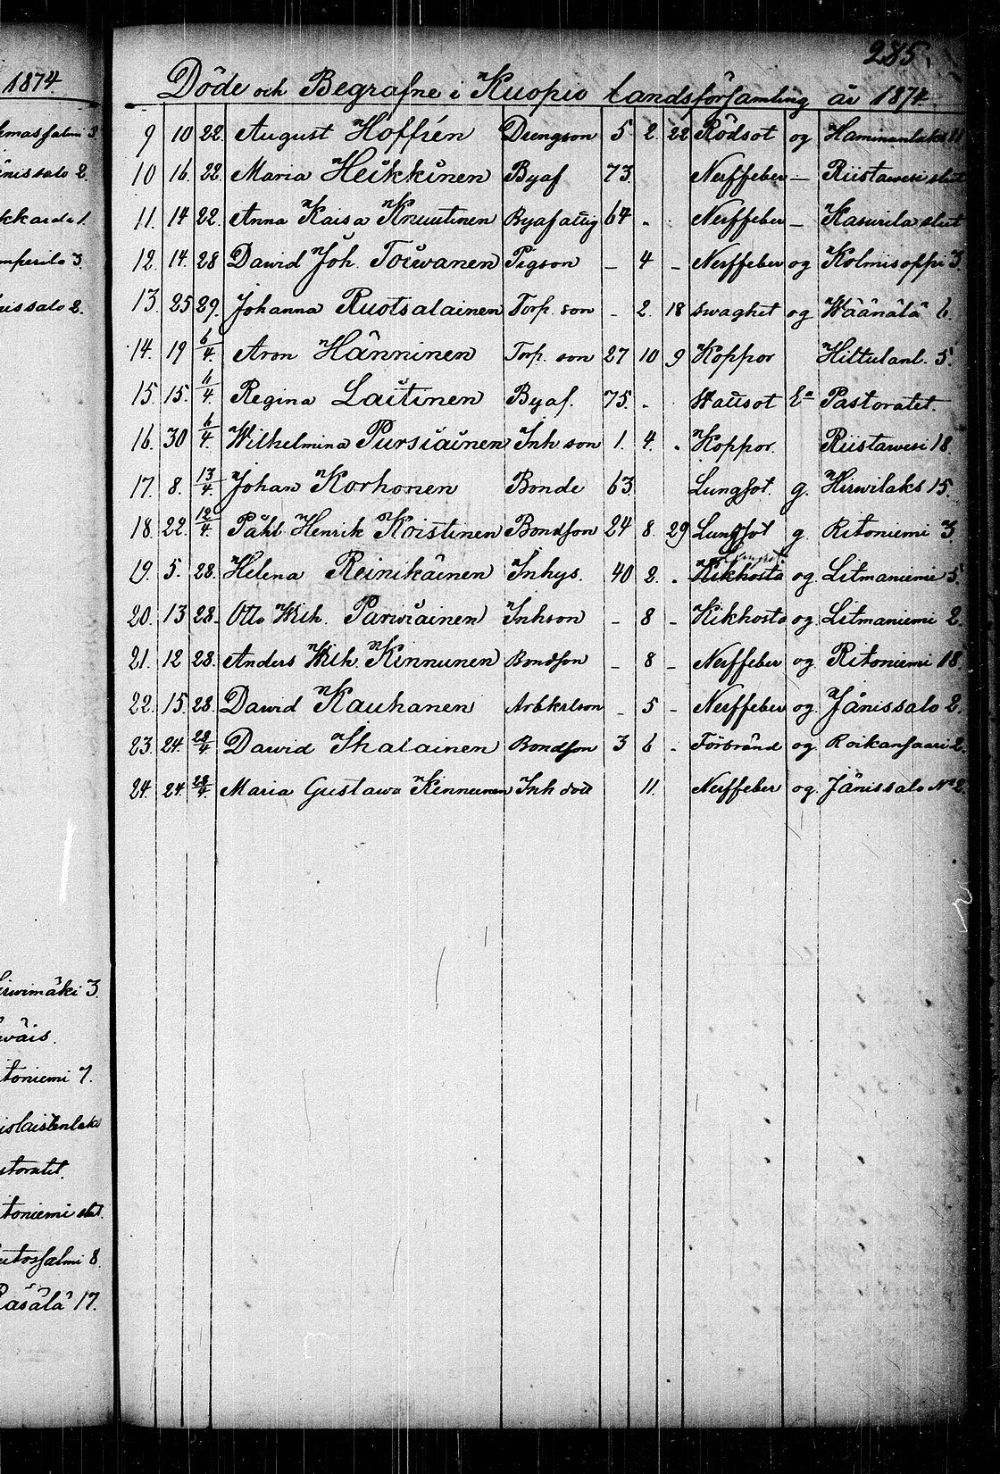 285.
1874
Döde och Begrafne i Kuopio Landsförsamling år 1874
9 10 22. August Hoffrén Drengson 5. 2. 22 Rödsot og Haminanlaks 11
10 16. 22. Maria Heikkinen Byaf 73. Nerffeber — Riistawesi slut
11. 14 22. Anna Kaisa Knuutinen Byafatiig 64 - Nerffeber — Kasurila slut
12. 14. 28 Dawid Joh. Toiwanen Pigson — 4 — Nerffeber og Kolmisoppi 3.
13. 25 29. Johanna Ruotsalainen Torp. son - 2. 18 swaghet og Wäänälä 6.
14. 19 6/4. Aron Hänninen Torp. son 27 10 9 Koppor Hiltulanl. 5.
15. 15. 6/4 Regina Laitinen Byaf. 75. - Hausot Ea Pastoratet.
16. 30 6/4. Wilhelmina Pursiainen Inh son 1. 4. - Koppor. Riistawesi 18.
17. 8. 13/4 Johan Korhonen Bonde 63 Lungsot. g. Hirwilaks 15.
18. 22. 12/4. Påhl Henrik Kristinen Bondson 24 8. 29 Lungsot g. Ritoniemi 3.
19. 5. 28. Helena Reinikainen Inhys. 40 2. - Kikhosta og Litmaniemi 5.
20. 13 28. Otto Wilh. Parwiainen Inhson - 8 - Kikhosta og Litmaniemi 2.
21. 12 28. Anders Wilh. Kinnunen Bondson - 8 - Nerffeber og Ritoniemi 18.
22. 15. 28. Dawid Kauhanen Arbkarlson - 5 - Nerffeber og Jänissalo 2.
23. 24. 28/4 Dawid Ihalainen Bondson 3 6 - Förbränd og Roikansaari 2.
24. 24. 28/4. Maria Gustawa Kinnunen Inh dott 11. Nerffeber og Jänissalo No 2.